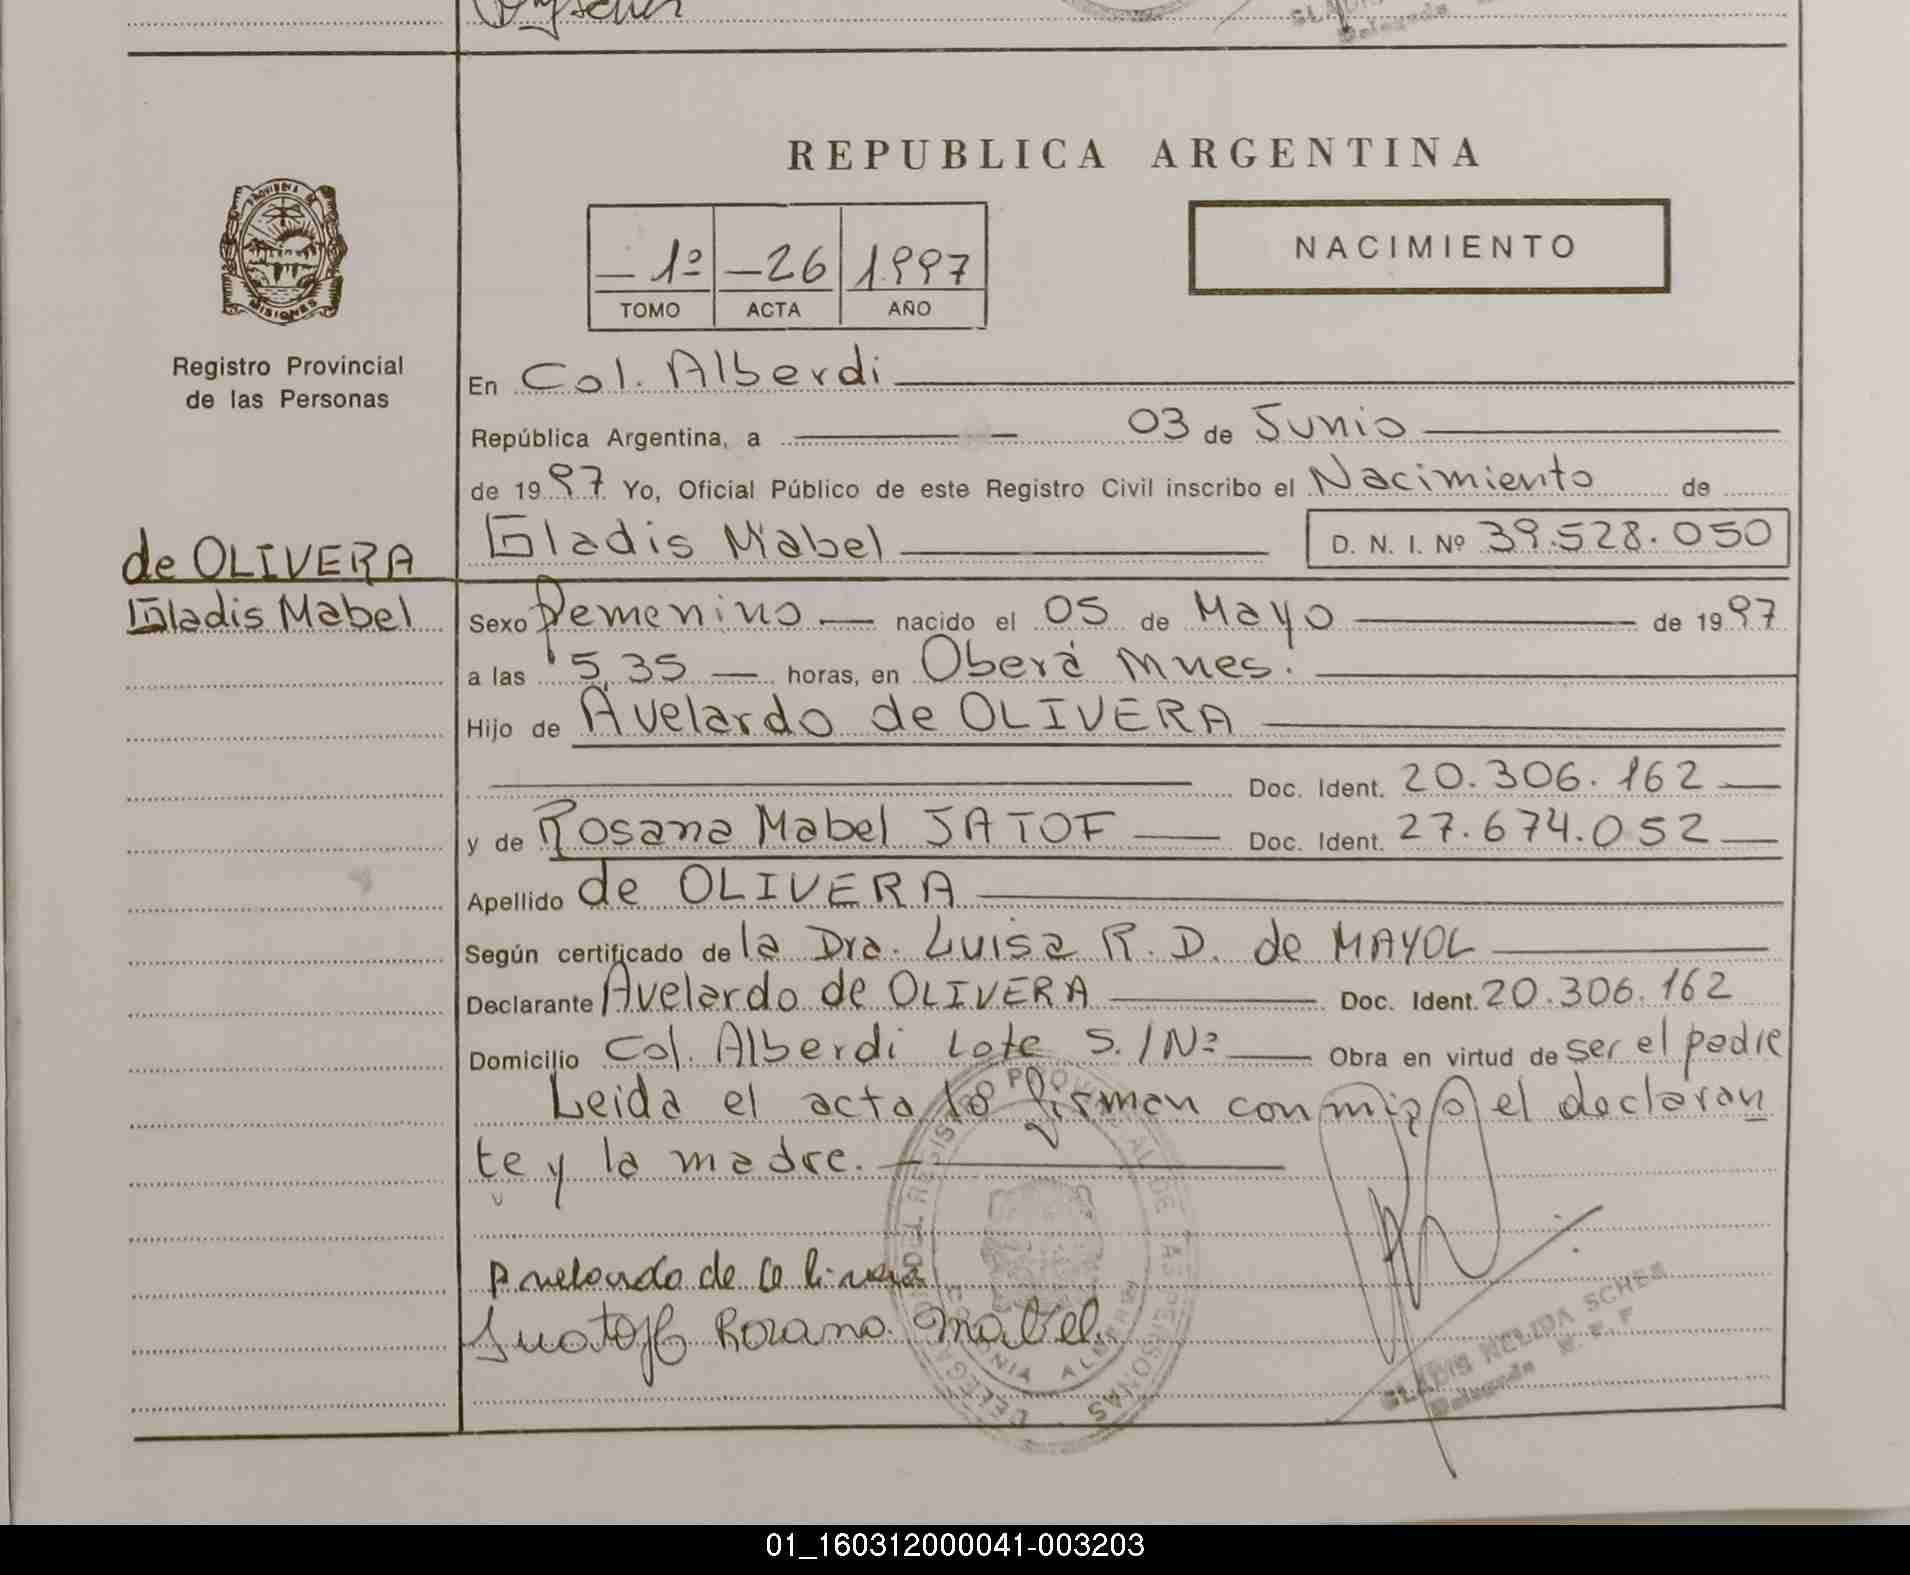 REPUBLICA ARGENTINA
NACIMIENTO
— 1º — 26 1997
TOMO ACTA AÑO
PROVINCIA DE
MISIONES
Registro Provincial
de las Personas
En Col. Alberdi
República Argentina, a 03 de Junio
de 1997 Yo, Oficial Público de este Registro Civil inscribo el Nacimiento de
Gladis Mabel D. N. I. Nº 39.528.050
de OLIVERA
Gladis Mabel
Sexo Femenino — nacido el 05 de Mayo de 1997
a las 5,35 — horas, en Oberá Mnes.
Hijo de Avelardo de OLIVERA
Doc. Ident. 20.306.162 —
y de Rosana Mabel JATOF — Doc. Ident. 27.674.052 —
Apellido de OLIVERA
Según certificado de la Dra. Luisa R. D. de MAYOL
Declarante Avelardo de OLIVERA Doc. Ident. 20.306.162
Domicilio Col. Alberdi Lote S./Nº — Obra en virtud de ser el padre
Leida el acta lo firman conmigo el declaran
te y la madre. —
Avelardo de Olivera
Rozana Mabel
DELEGACION DEL REGISTRO PROVINCIAL DE LAS PERSONAS
COLONIA ALBERDI
GLADIS NELIDA SCHER
Delegada
01_160312000041-003203